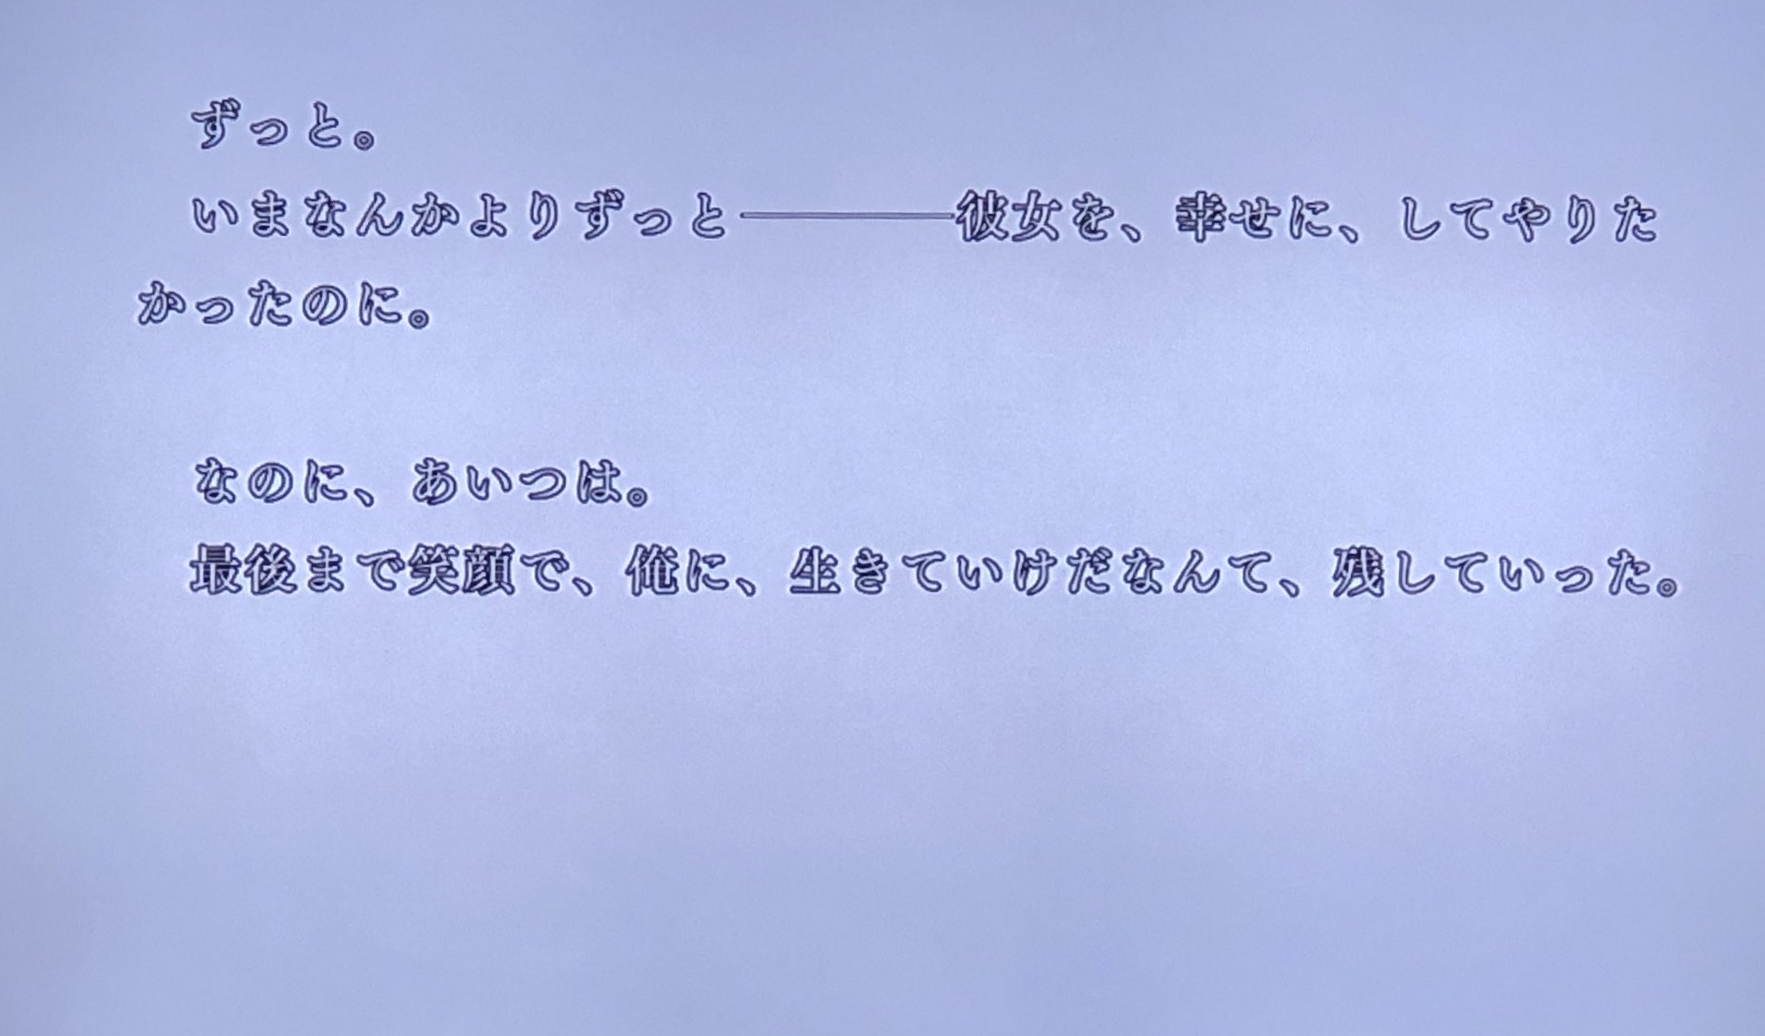 ずっと。
いまなんかよりずっと――――彼女を、幸せに、してやりた
かったのに。
なのに、あいつは。
最後まで笑顔で、俺に、生きていけだなんて、残していった。